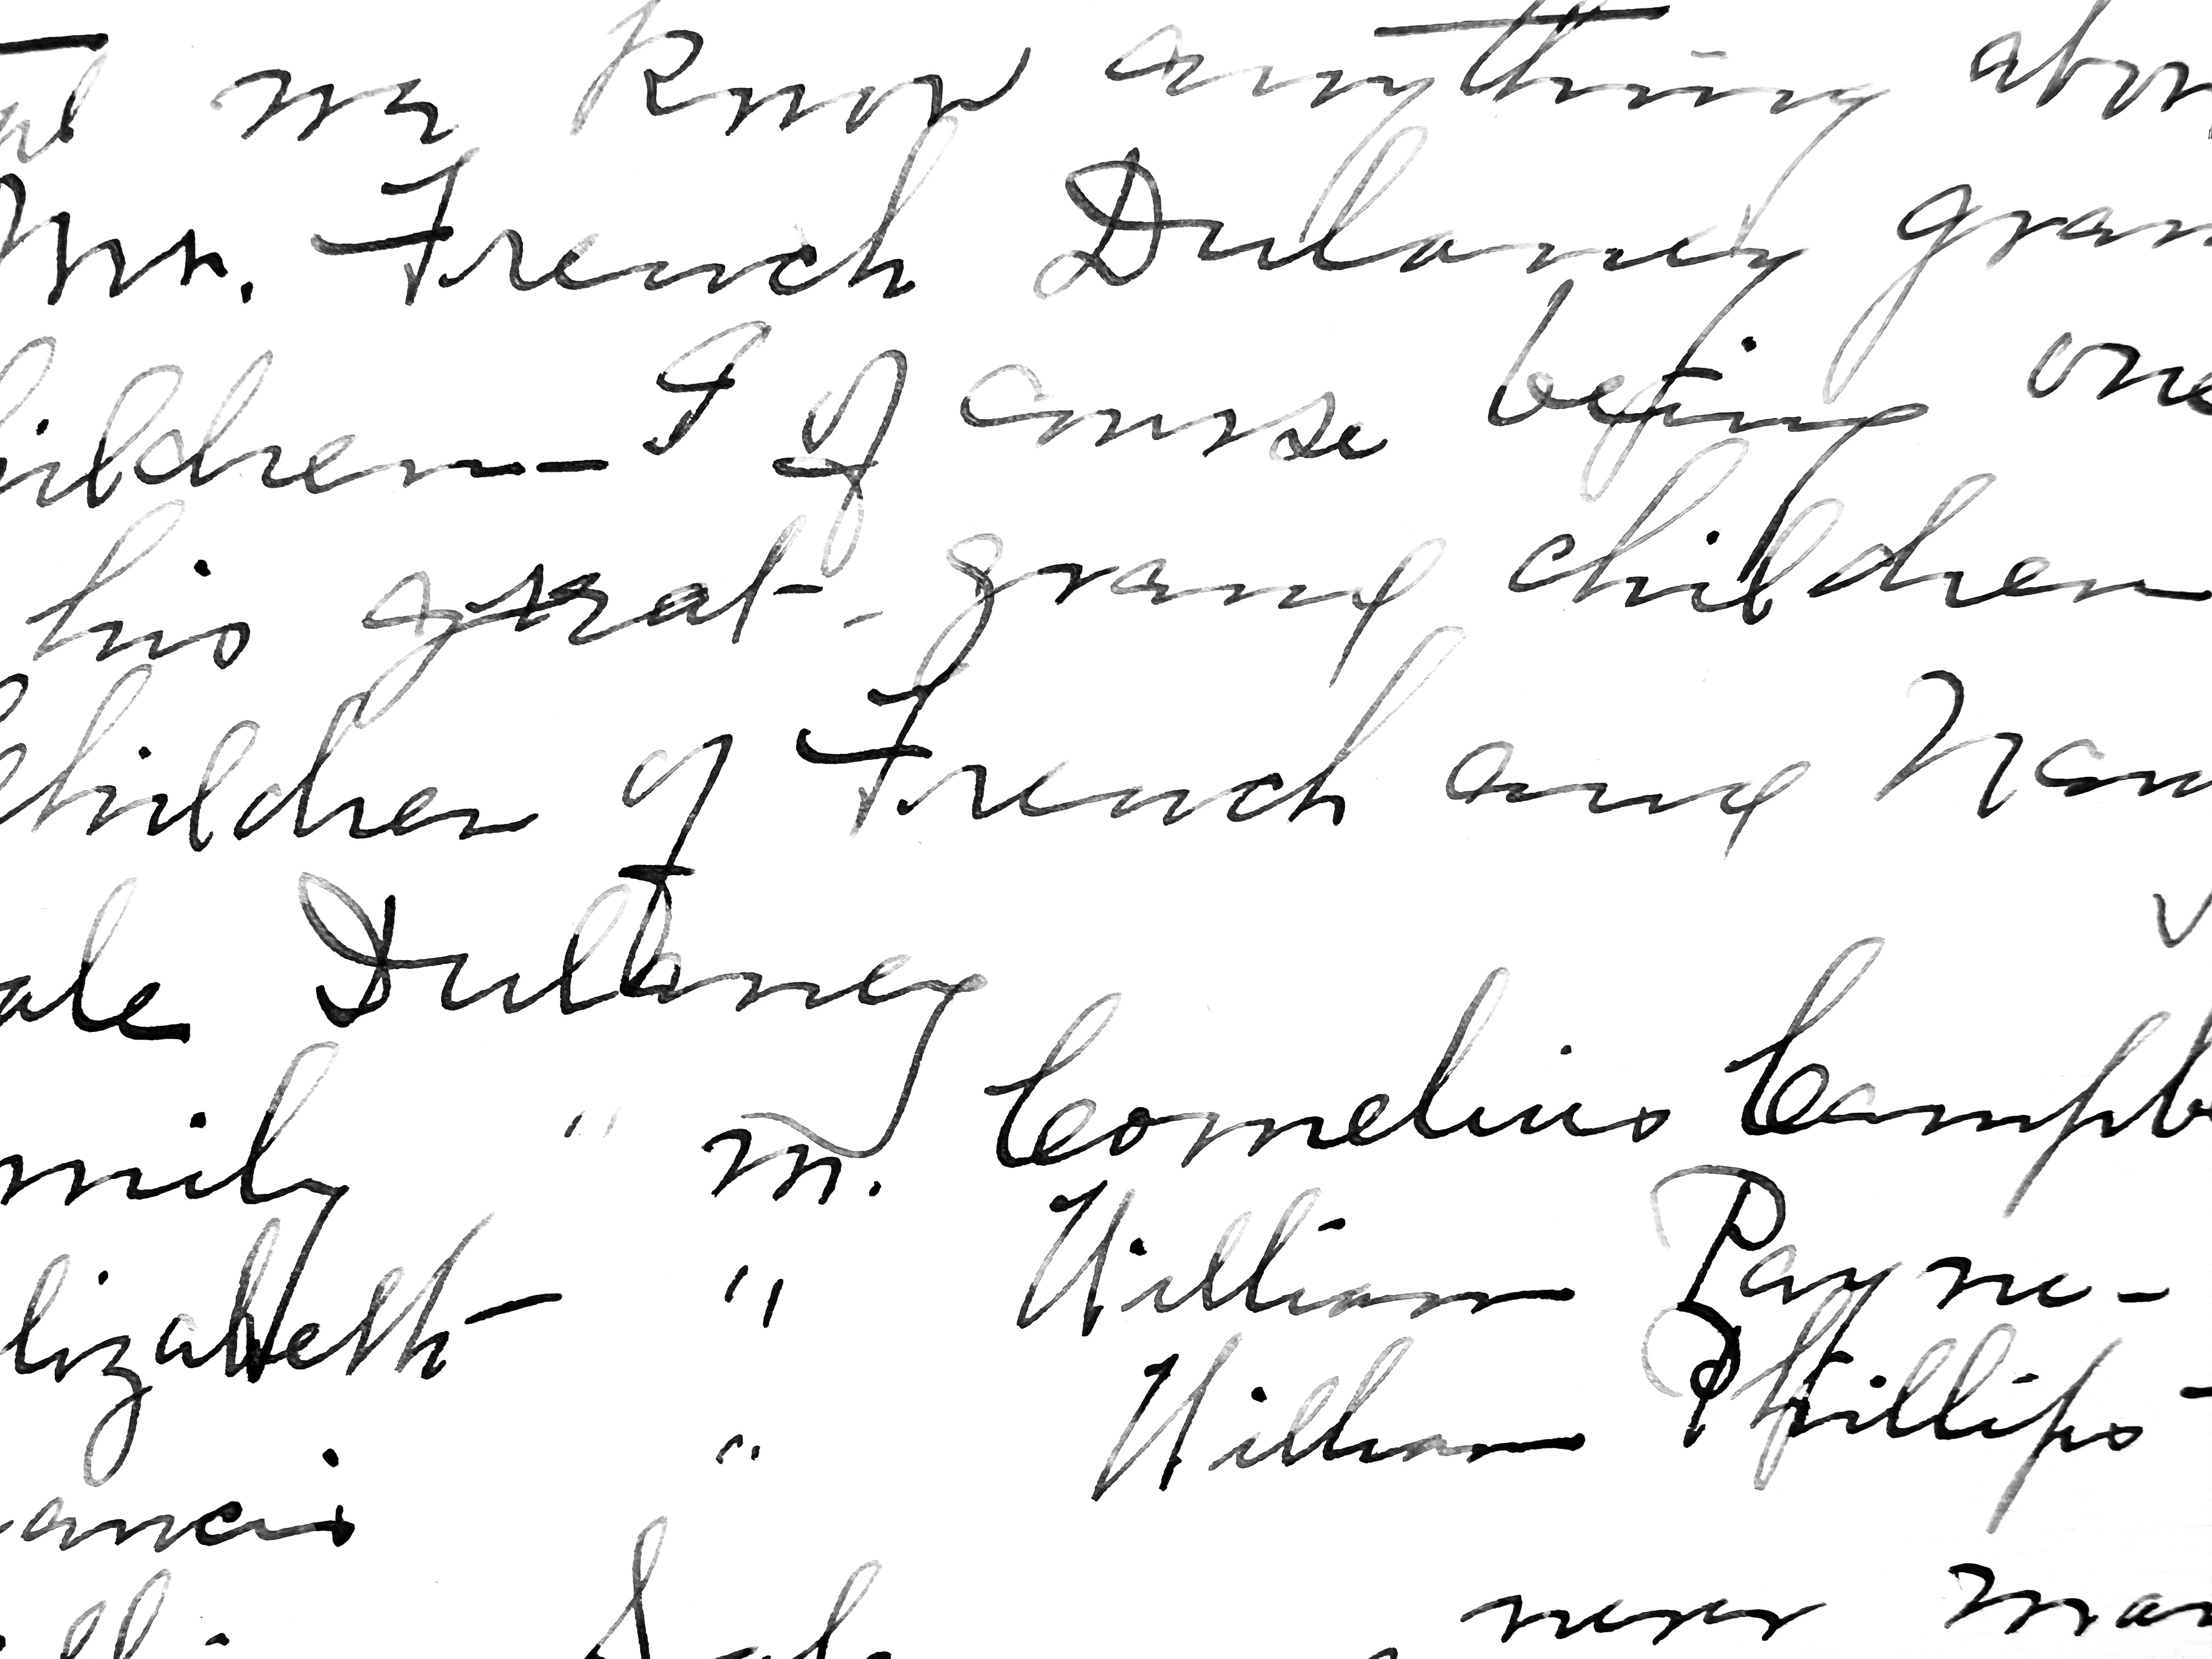 we know anything abou
Mr. French Dulaney gran
hildren — I of course being one
his great - grand children
Children of French and Nan
ale Dulaney
mily " m. Cornelius Campbe
lizabeth " William Payne -
ancis " William Phillips -
never mar